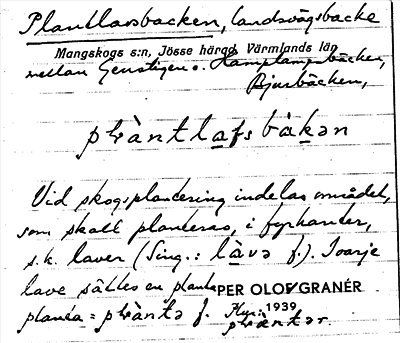 Plantlavsbacken, landsvägsbacke
Mangskogs s:n, Jösse härad, Värmlands län
mellan Genstigen o. Hamptangsbäcken,
Bjurbäcken,
plàntlafsbàkən
Vid skogsplantering indelas området,
som skall planteras, i fyrkanter,
s.k. lavar (Sing.: làvə f.). I varje
lave sättes en planta
PER OLOV GRANÉR
planta = plàntə f. Plur.: 1939
plæntər.